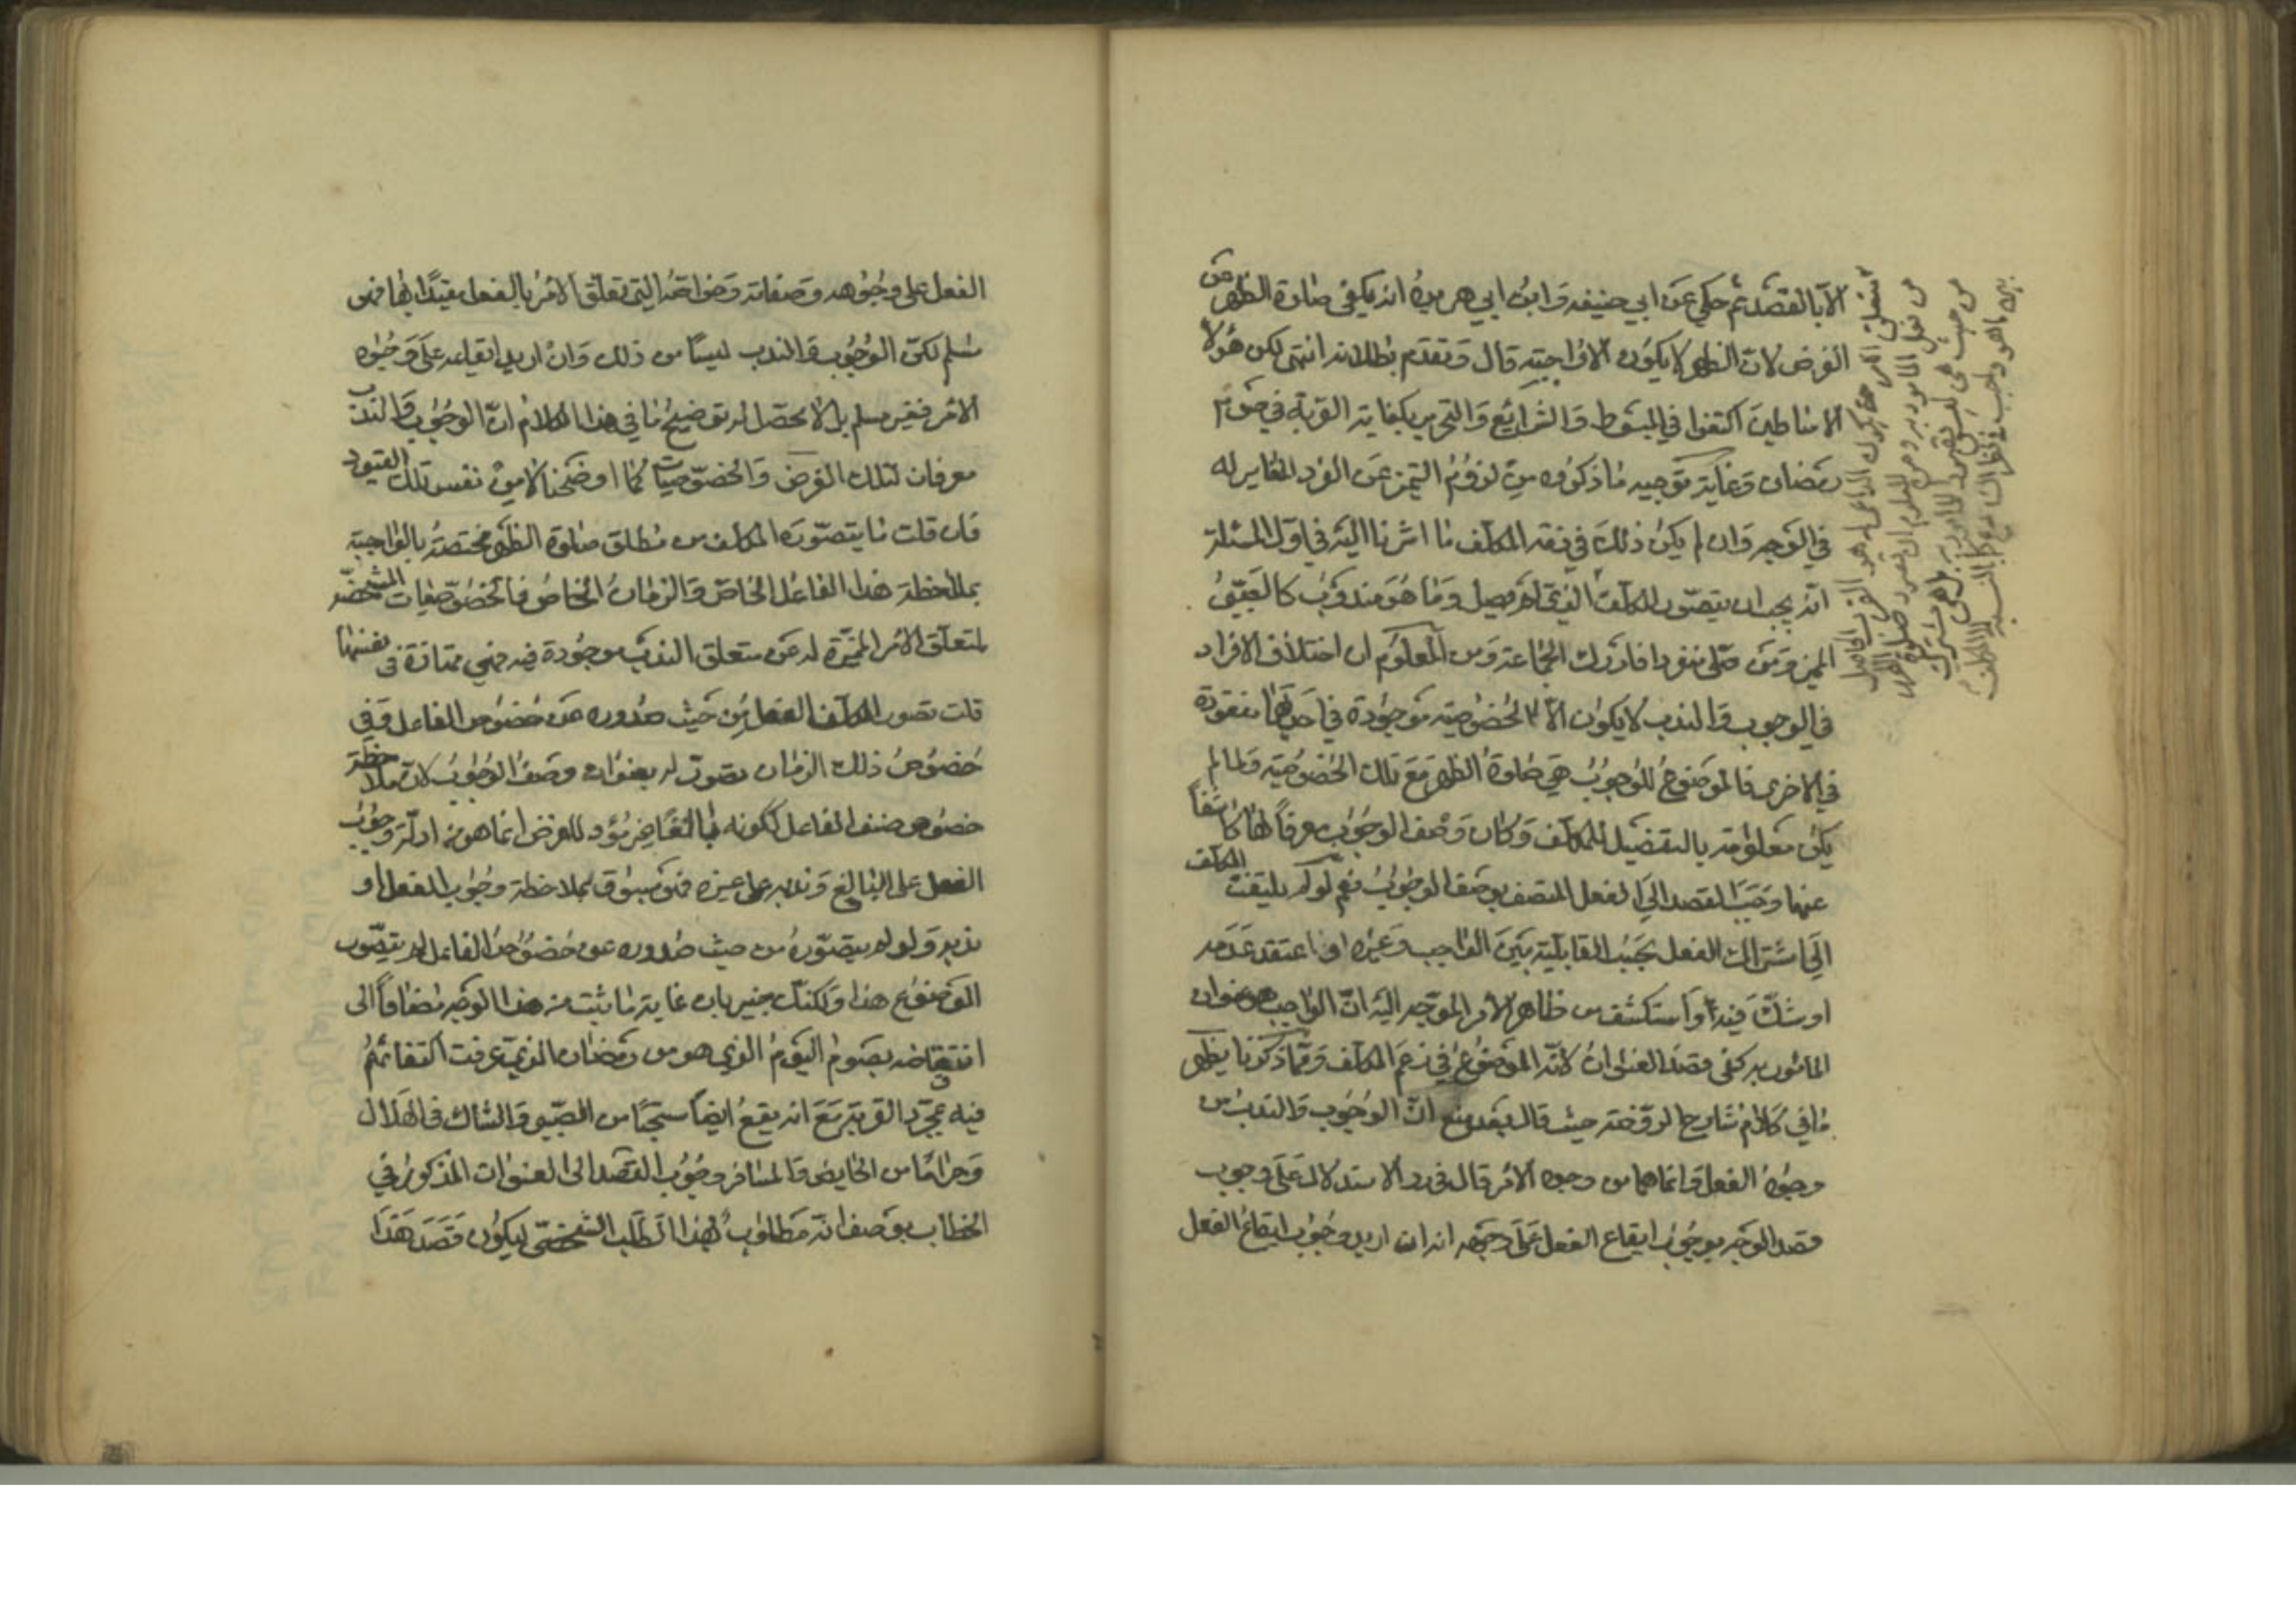 الا بالقصد ثم حكي عن ابي حنيفه وابن ابي هريرة انه يكفي صلوة الظهر عن
الفرض لان الظهر لا يكون الا واجبة قال وتقدم بطلانه انتهى لكن هؤلا
الاساطين اكتفوا في المبسوط والشرائع والتحرير بكفاية القربة في صوم
رمضان وغاية توجيه ما ذكروه من لزوم التميز عن الفرد المغاير له
في الوجه وان لم يكن ذلك في ذمة المكلف ما اشرنا اليه في اول المسئلة
انه يجب ان يتصور المكلف الفعل وما هو مندوب كالصبي
المميز ومن صلى منفردا فادرك الجماعة ومن المعلوم ان اختلاف الافراد
في الوجوب والندب لا يكون الا لخصوصية موجودة في احدهما مفقودة
في الاخرى فالموضوع للوجوب هي صلوة الظهر مع تلك الخصوصية ولما لم
يكن معلومة بالتفصيل للمكلف وكان وصف الوجوب معرفاً لها كاشفاً
عنها وجب القصد الى الفعل المتصف بوصف الوجوب نعم لو لم يلتفت المكلف
الى اشتراك الفعل بحسب القابلية بين الواجب وغيره او اعتقد عدمه
او شك فيه او استكشف من ظاهر الامر الموجه اليه ان الواجب هو عنوان
المأمور به كفى قصد العنوان لانه الموضوع في زعم المكلف ومما ذكرنا يظهر
ما في كلام شارح الروضة حيث قال بعد منع ان الوجوب والندب من
وجوه الفعل وانما هما من وجوه الامر قال في رد الاستدلال على وجوب
قصد الوجه بوجوب ايقاع الفعل على وجهه انه ان اريد وجوب ايقاع الفعل
الفعل على وجوهه وصفاته وخواصه التي تعلق الامر بالفعل مقيدًا بها فهو
مسلم لكن الوجوب والندب ليسا من ذلك وان اريد ايقاعه على وجوه
الامر فغير مسلم بل لا محصل له توضيح ما في هذا الكلام ان الوجوب والندب
معرفان لتلك الفرض والخصوصيات كما اوضحنا نفس تلك القيود
فان قلت ما يتصوره المكلف من مطلق صلوة الظهر مختصة بالواجبة
بملاحظة هذا الفاعل الخاص والزمان الخاص فالخصوصيات المشخصة
لمتعلق الامر المميزة له عن متعلق الندب موجودة فيه فهي ممتازة في نفسها
قلت تصور المكلف الفعل من حيث صدوره عن خصوص الفاعل وفي
خصوص ذلك الزمان تصور له بعنوان وصف الوجوب لان ملاحظة
خصوص صنف الفاعل ككونه بالغًا غير مؤد للفرض انما هو من ادلة وجوب
الفعل على البالغ وندبه على غيره فهو مسبوق بملاحظة وجوب الفعل او
ندبه ولو لم يتصوره من حيث صدوره عن خصوص الفاعل لم يتصور
الموضوع هذا ولكنك خبير بان غاية ما يثبت من هذا الوجه مضافاً الى
انتقاضه بصوم اليوم الذي هو من رمضان الذي عرفت اكتفائهم
فيه بمجرد القربة مع انه يقع ايضا مستحبًا من الصبي والشاك في الهلال
وحرامًا من الحايض والمسافر وجوب القصد الى العنوان المذكور في
الخطاب بوصف انه مطلوب لهذا الطلب الشخصي ليكون قصد هذا